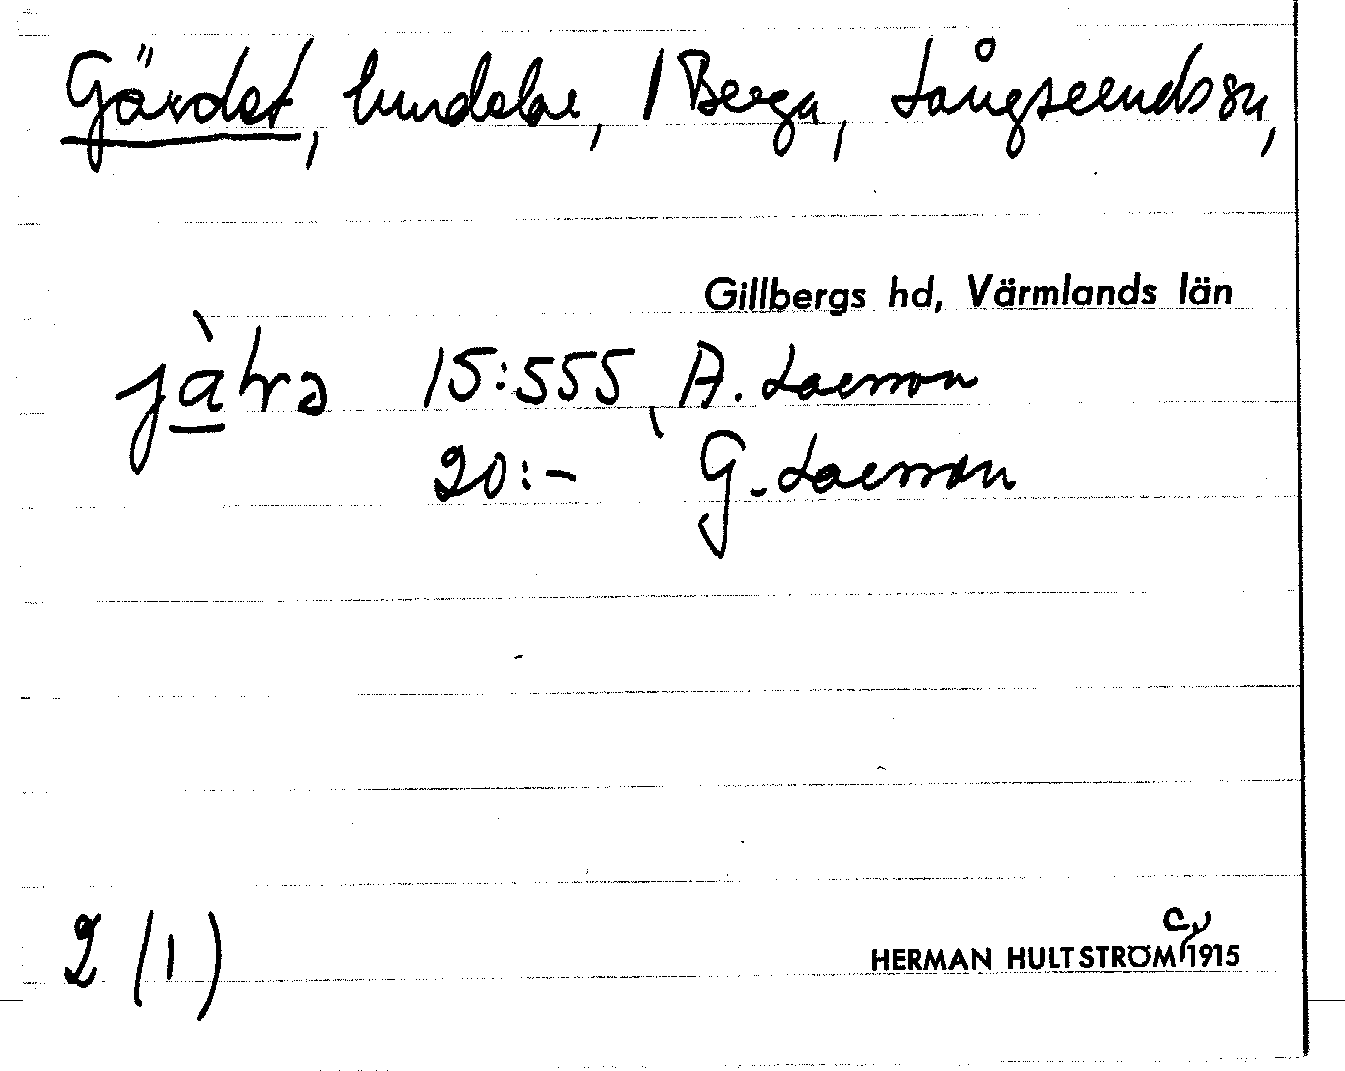 Gärdet, lundelar, 1 Berga, Långserudssn,
Gillbergs hd, Värmlands län
jàḷrə 15:555, A. Larsson
20:- G. Larsson
2 (1)
HERMAN HULTSTRÖM 1915